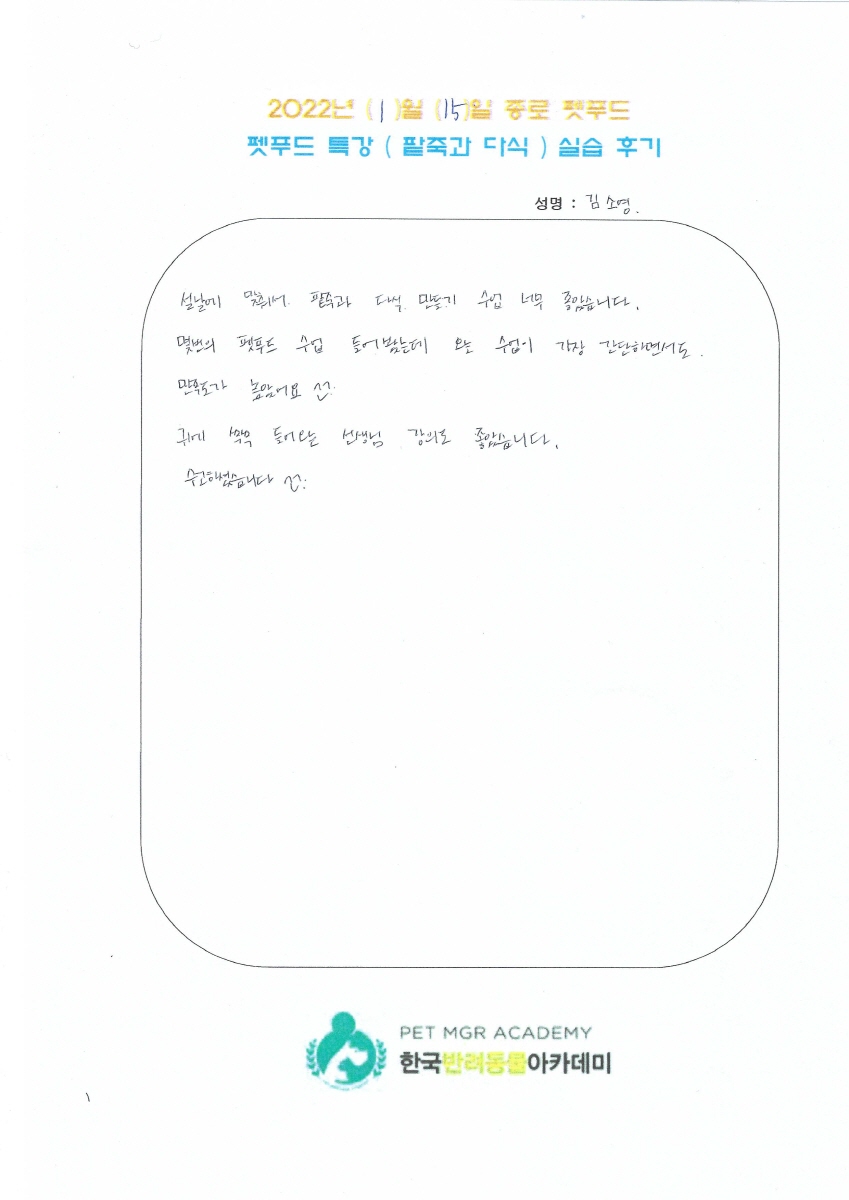 2022년 (1)월 (15)일 종로 펫푸드
펫푸드 특강 ( 팥죽과 다식 ) 실습 후기
성명 : 김소영.
설날에 맞춰서. 팥죽과 다식 만들기 수업 너무 좋았습니다.
몇번의 펫푸드 수업 들어봤는데 오늘 수업이 가장 간단하면서도.
만족도가 높았어요 ^^:
귀에 쏙쏙 들어오는 선생님 강의도 좋았습니다.
수고하셨습니다 ^^:
PET MGR ACADEMY
한국반려동물아카데미